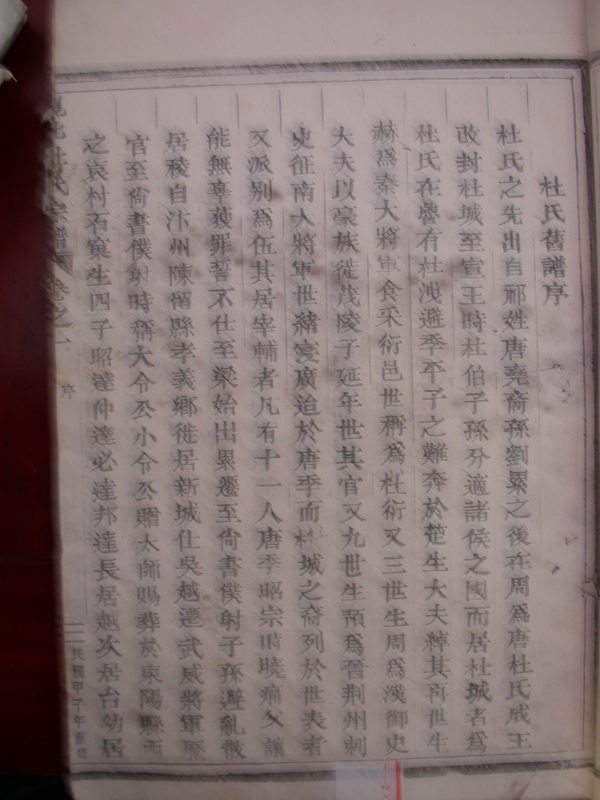 杜氏舊譜序
杜氏之先出自祁姓唐堯裔孫劉累之後在周爲唐杜氏成王
改封杜城至宣王時杜伯子孫分適諸侯之國而居杜城者爲
杜氏在魯有杜洩避季平子之難奔於楚生大夫綽其再世生
赫爲秦大將軍食采衍邑世稱爲杜衍又三世生周爲漢御史
大夫以豪族徙茂陵子延年世其官又九世生預爲晉荆州刺
史征南大將軍世緒寖廣迨於唐季而杜城之裔列於世表者
又派別爲伍其居宰輔者凡有十一人唐季昭宗時曉痛父讓
能無辜獲罪誓不仕至梁始出累遷至尙書僕射子孫避亂散
居稜自汴州陳留縣孝義鄉徙居新城仕吳越遷武威將軍歷
官至尙書僕射時稱大令公小令公贈太師賜葬於東陽縣西
之袁村石窠生四子昭達仲達必達邦達長居越次居台幼居
杜氏宗譜 卷之一
序
一
民國甲子年重修